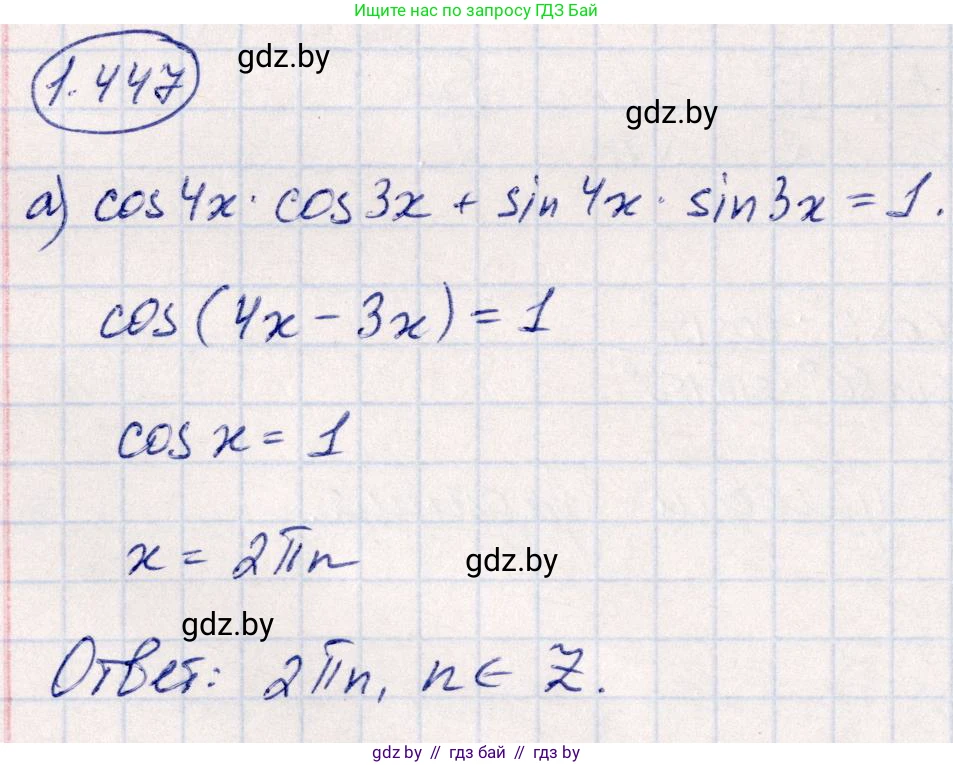 Ищите нас по запросу ГДЗ Бай
1.447
gdz.by
gdz.by
а) cos 4x · cos 3x + sin 4x · sin 3x = 1.
cos (4x - 3x) = 1
cos x = 1
x = 2πn
gdz.by
gdz.by
Ответ: 2πn, n ∈ Z.
gdz.by // гдз бай // гдз by